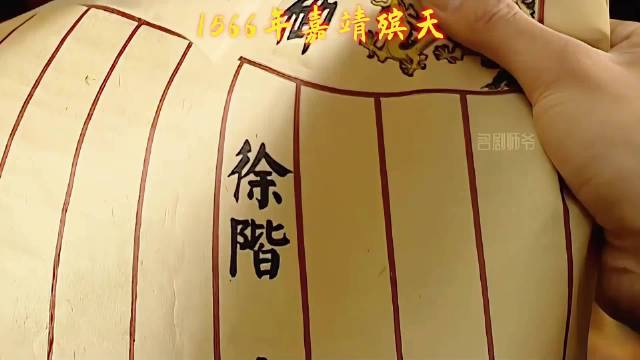 1566年嘉靖殡天
名剧师爷
徐階